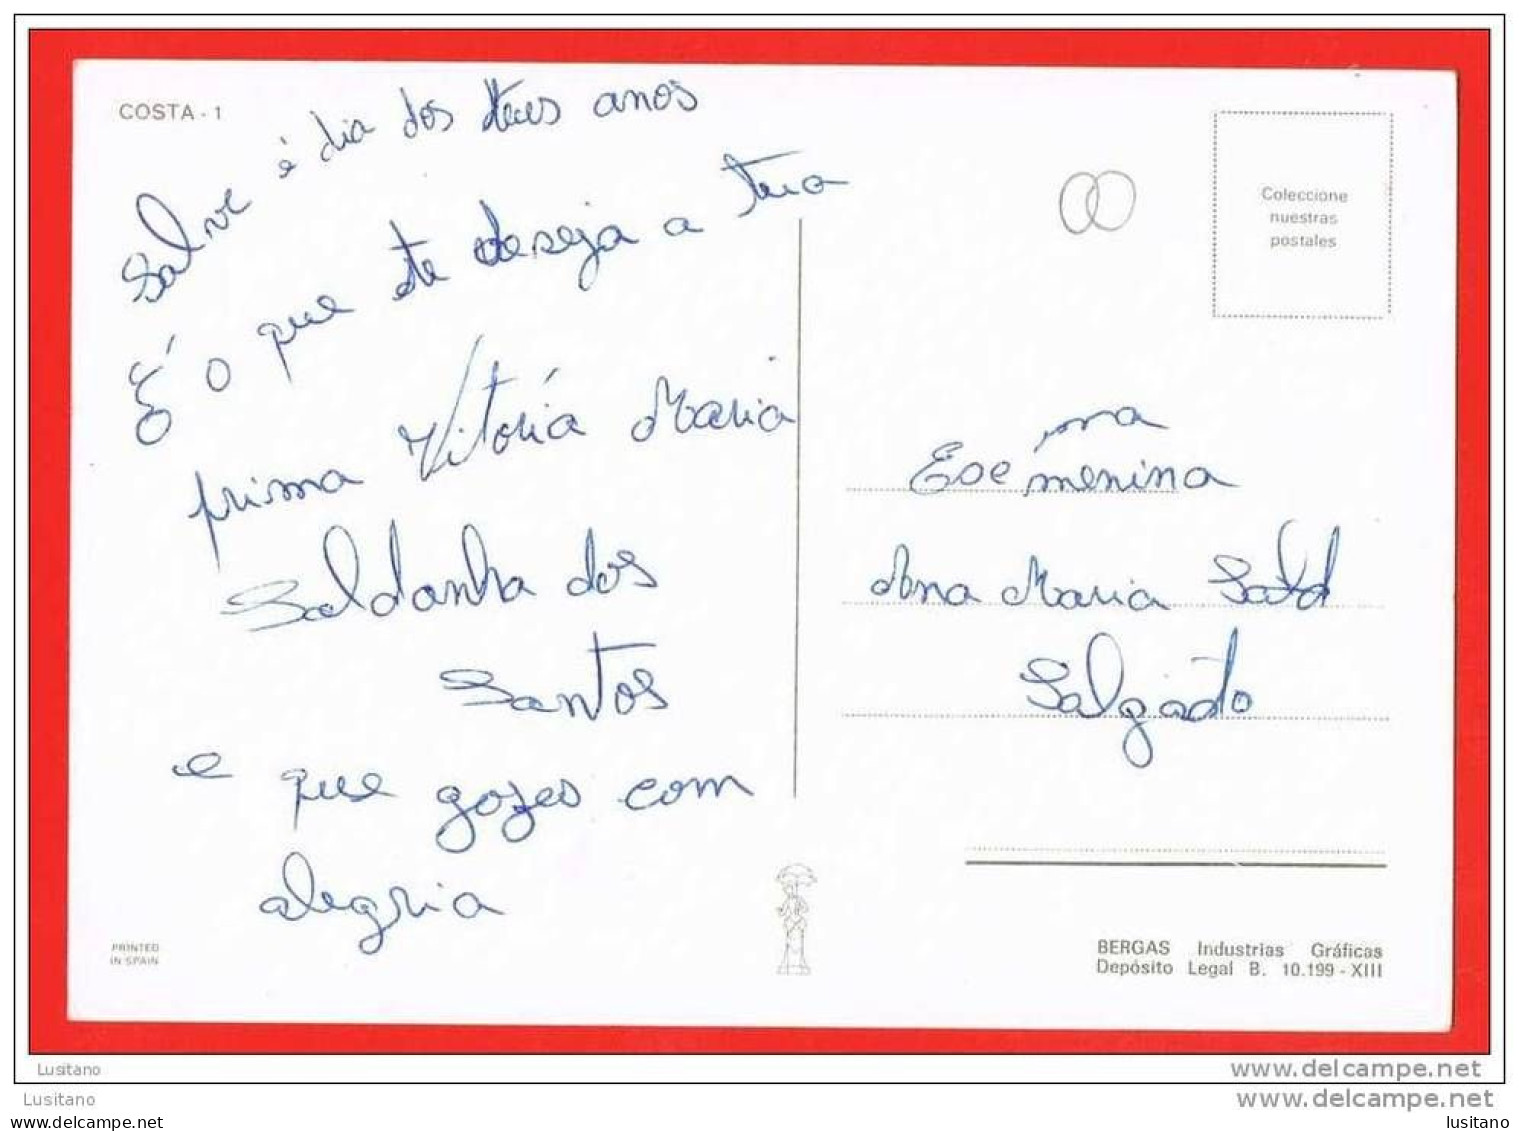 COSTA - 1
Salve é dia dos teus anos
É o que te deseja a tua
prima Vitória Maria
Saldanha dos
Santos
e que gozes com
alegria
PRINTED
IN SPAIN
Coleccione
nuestras
postales
ma
Exe menina
Ana Maria Sald
Salgado
BERGAS Industrias Gráficas
Depósito Legal B. 10.199 - XIII
Lusitano
www.delcampe.net
Lusitano
www.delcampe.net
www.delcampe.net
lusitano